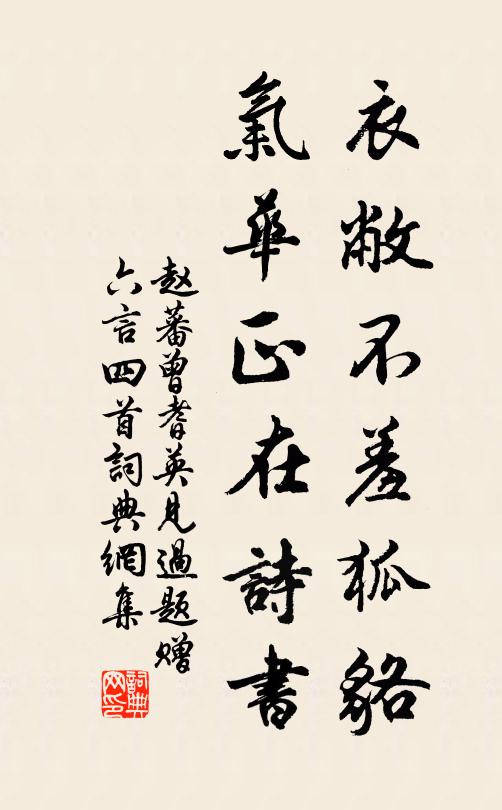 衣敝不羞狐貉
氣華正在詩書
赵蕃曾耆英見過題贈
六言四首詞典網集
詞典网印